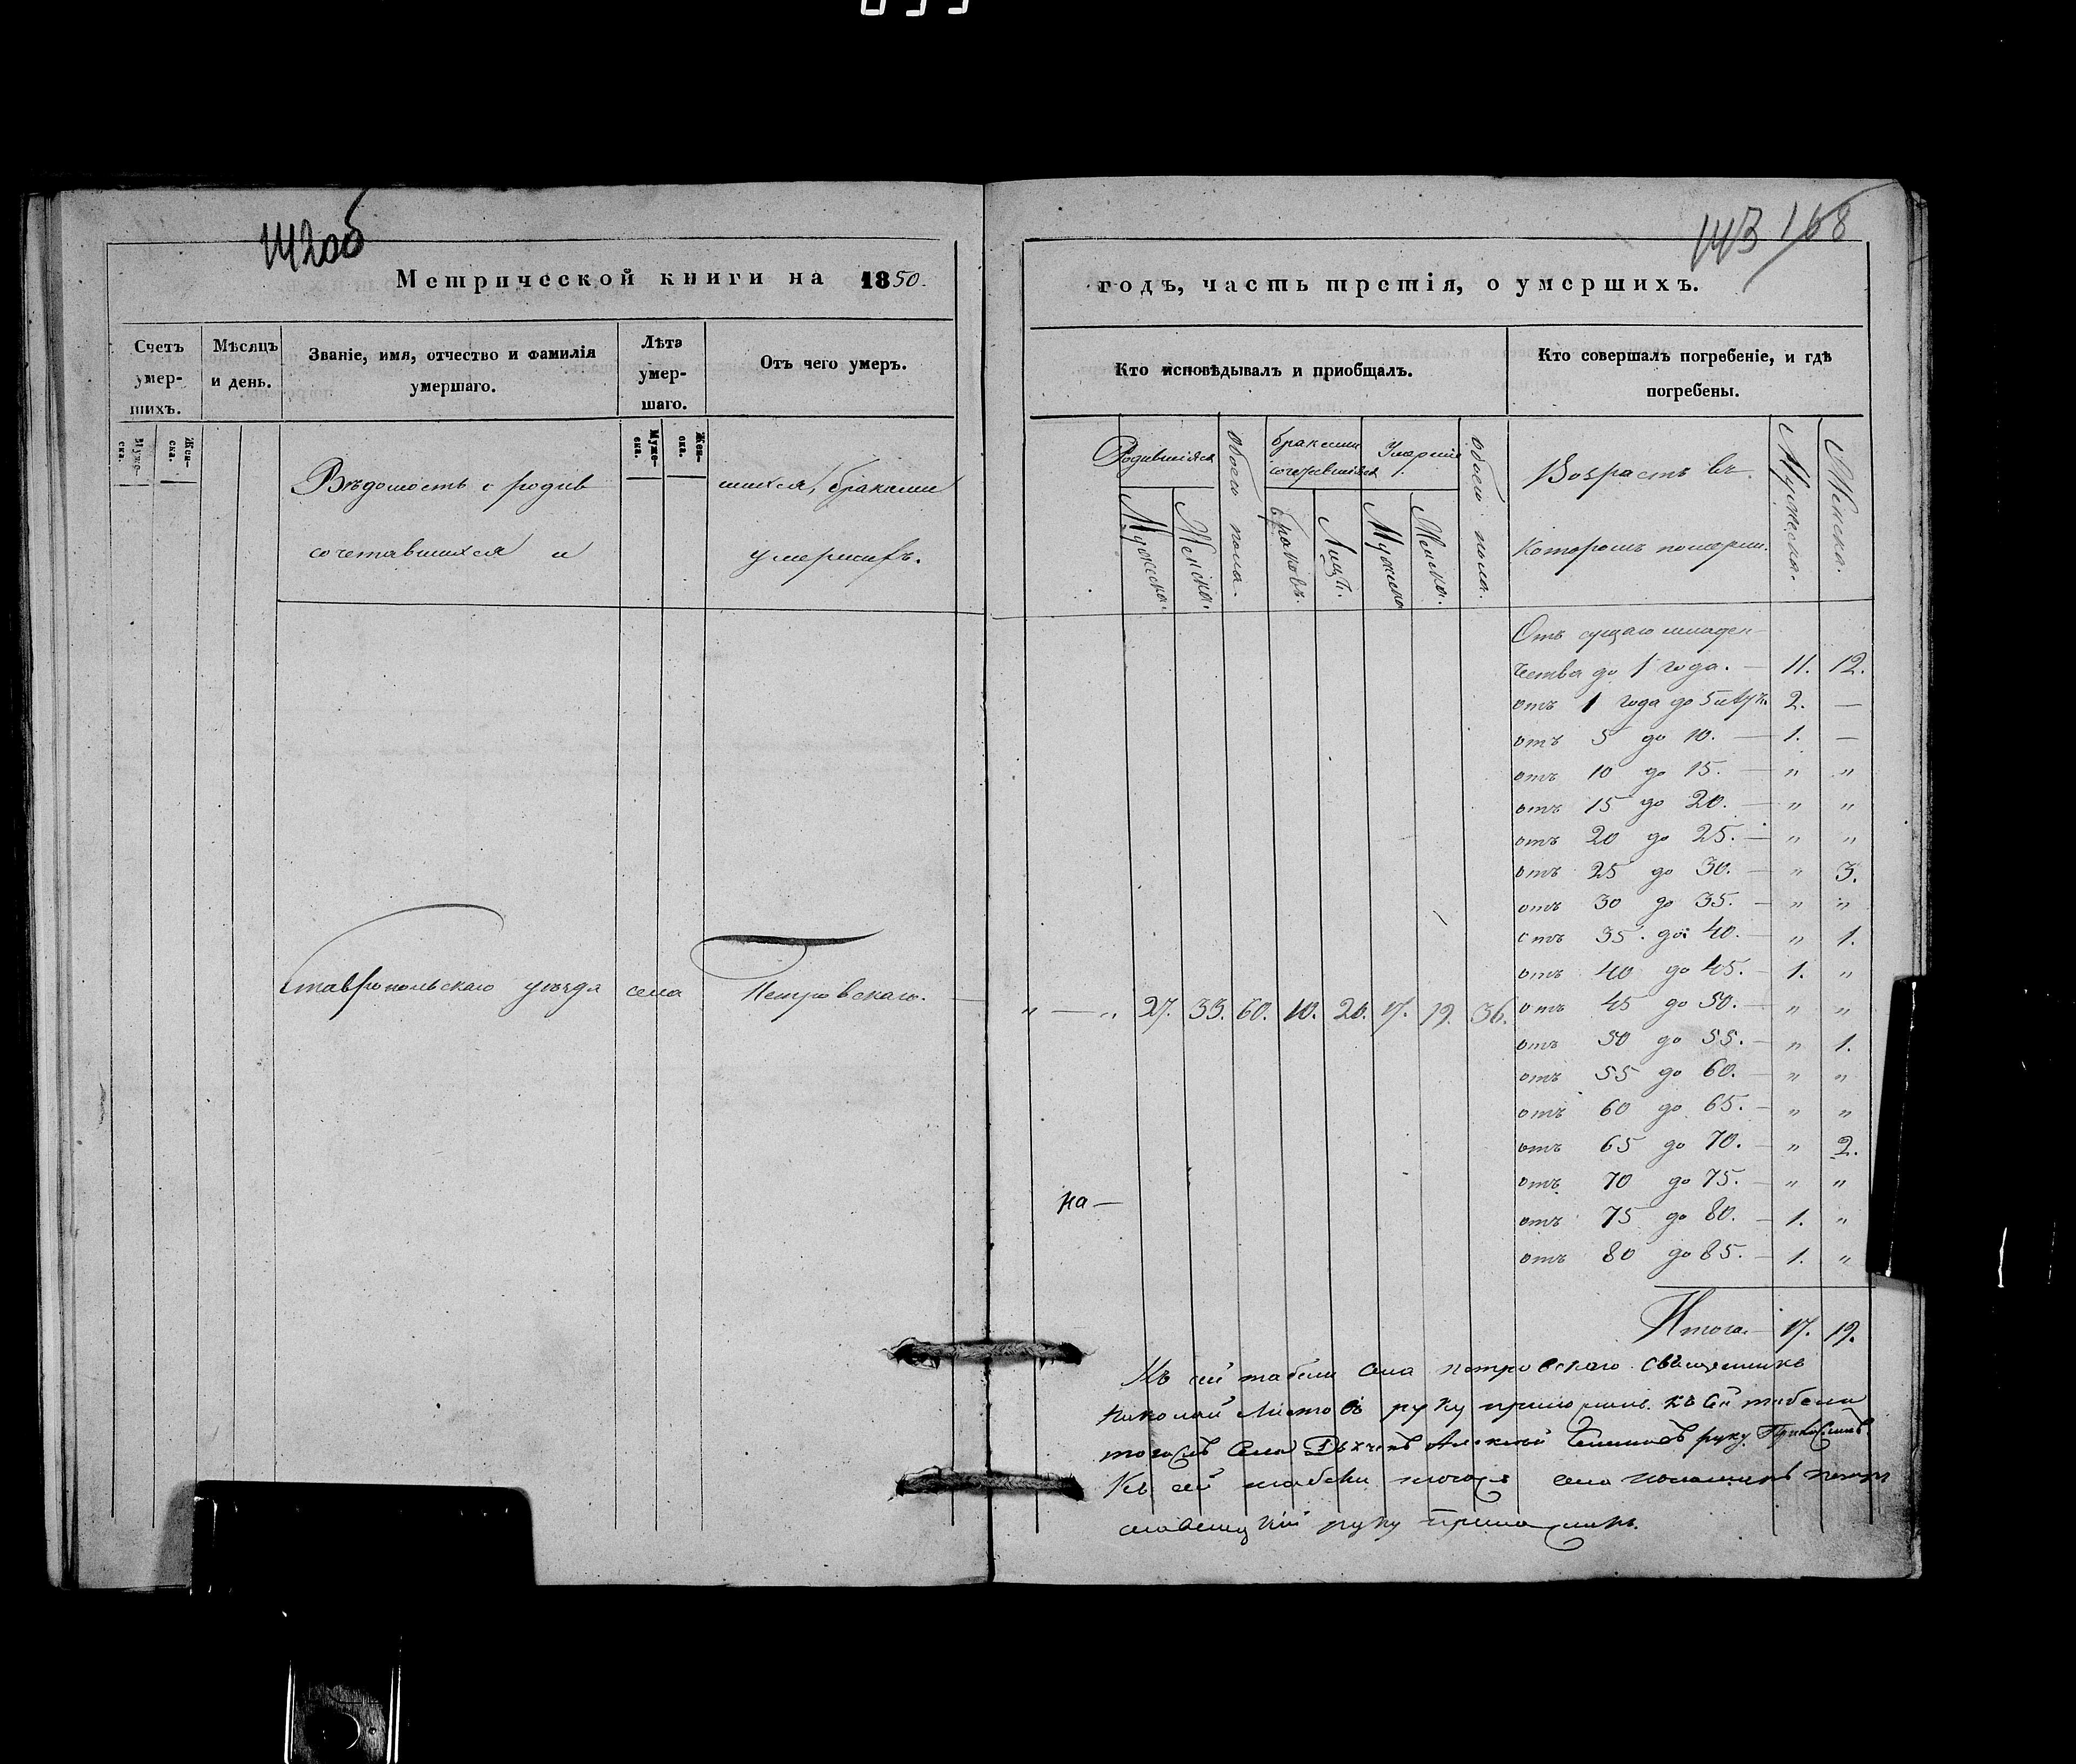 Метрической книги на 1850.
годъ, часть третія, о умершихъ.
143 168
Счетъ умер-шихъ.
Мѣсяцъ и день.
Званіе, имя, отчество и фамилія умершаго.
Лѣта умер-шаго.
Отъ чего умеръ.
Кто исповѣдывалъ и пріобщалъ.
Кто совершалъ погребеніе, и гдѣ погребены.
Муже-ска.
Жен-ска.
Муже-ска.
Жен-ска.
Вѣдомость о родив
шихся, браками
сочетавшихся и
умершихъ.
Родившіяся
Мужеска.
Женска.
обоего пола.
браками сочетавшіяся
браковъ.
Лицъ.
Умершіе
Мужеска
Женска.
обоего пола.
Возрастъ въ
которомъ померли.
Мужеска.
Женска.
Отъ сущаго младен-
чества до 1 года. — 11. 12.
отъ 1 года до 5 лѣтъ. 2. —
отъ 5 до 10. — 1. —
отъ 10 до 15. — " "
отъ 15 до 20. — " "
отъ 20 до 25. — " "
отъ 25 до 30. — " 3.
отъ 30 до 35. — " "
отъ 35. до 40. — " 1.
отъ 40 до 45. — 1. "
Ставропольскаго уѣзда села Петровскаго. — " — " 27. 33. 60. 10. 20. 17. 19. 36.
отъ 45 до 50. — " "
отъ 50 до 55. — " 1.
отъ 55 до 60. — " "
отъ 60 до 65. — " "
отъ 65 до 70. — " 2.
отъ 70 до 75. — " "
отъ 75 до 80. — 1. "
отъ 80 до 85. — 1. "
на —
Итого. — 17. 19.
Къ сей табели села петровскаго священникъ
Николай Листовъ руку приложилъ. къ сей табели
тогожъ села Дьячекъ Алексѣй руку Приложилъ
Къ сей табели тогожъ села пономарь
руку приложилъ.